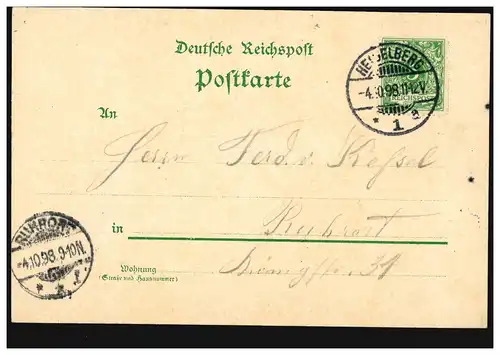 Deutsche Reichspost
Postkarte
HEIDELBERG
-4.10.98.11-12V.
* 1 a
5
REICHSPOST
An
Herrn Ferd. v. Kessel
in Ruhrort
Königstr. 31
Wohnung
(Straße und Hausnummer)
RUHRORT
-4.10.98.9-10N.